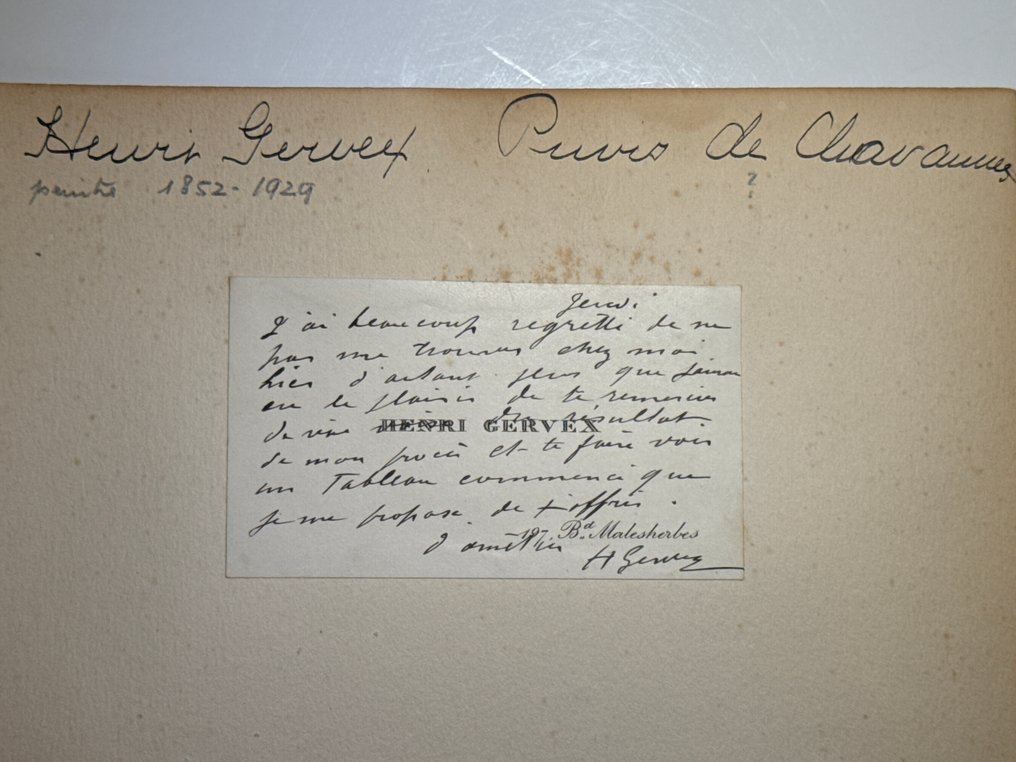 Henri Gervex Puvis de Chavannes
peintre 1852-1929 ?
Jeudi
J'ai beaucoup regretté de ne
pas me trouver chez moi
hier d'autant plus que j'aurais
eu le plaisir de te remercier
de vive du résultat
HENRI GERVEX
de mon procès et te faire voir
un Tableau commencé que
je me propose de t'offrir.
197, Bd. Malesherbes
d'amitiés
H Gervex